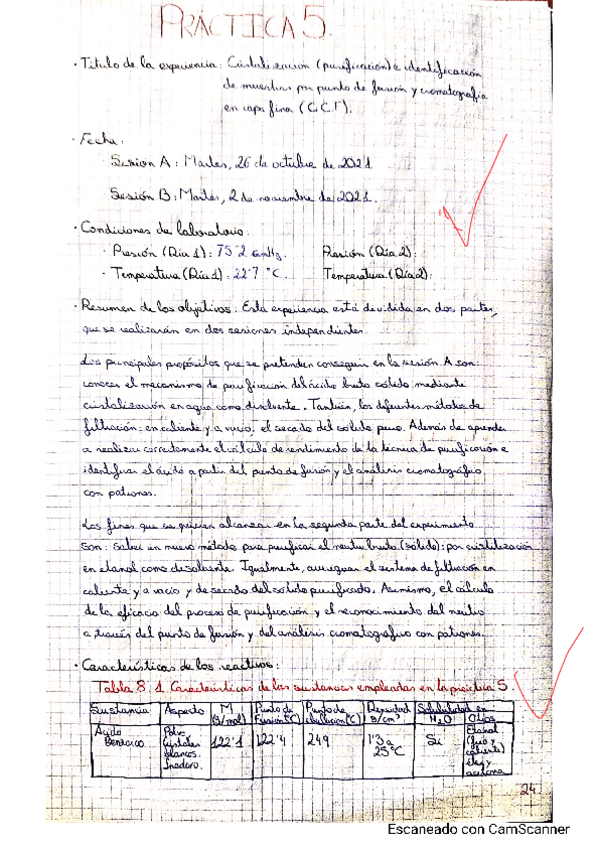 PRÁCTICA 5.
· Título de la experiencia: Cristalización (purificación) e identificación
de muestras por punto de fusión y cromatografía
en capa fina (C.C.F).
· Fecha:
Sesión A: Martes, 26 de octubre de 2021
Sesión B: Martes, 2 de noviembre de 2021.
· Condiciones de laboratorio:
· Presión (Día 1): 75'2 cmHg. Presión (Día 2):
· Temperatura (Día 1): 22'7 °C. Temperatura (Día 2):
· Resumen de los objetivos: Esta experiencia está dividida en dos partes,
que se realizarán en dos sesiones independientes.
Los principales propósitos que se pretenden conseguir en la sesión A son:
conocer el mecanismo de purificación del ácido bruto sólido mediante
cristalización en agua como disolvente. También, los diferentes métodos de
filtración: en caliente y a vacío, el secado del sólido puro. Además de aprender
a realizar correctamente el cálculo de rendimiento de la técnica de purificación e
identificar el ácido a partir del punto de fusión y el análisis cromatográfico
con patrones.
Los fines que se quieren alcanzar en la segunda parte del experimento
son: saber un nuevo método para purificar el neutro bruto (sólido): por cristalización
en etanol como disolvente. Igualmente, el sistema de filtración en
caliente y a vacío y de secado del sólido purificado. Asimismo, el cálculo
de la eficacia del proceso de purificación y el reconocimiento del neutro
a través del punto de fusión y del análisis cromatográfico con patrones.
· Características de los reactivos:
Tabla 8.1. Características de las sustancias empleadas en la práctica 5.
Sustancia Aspecto M (g/mol) Punto de fusión (°C) Punto de ebullición (°C) Densidad g/cm³ Solubilidad en: H₂O Otros
Ácido Benzoico Polvo, cristales blancos. Inodoro. 122'1 122'4 249 1'3 a 25°C Sí Etanol (frío y caliente) éter y acetona
24
Escaneado con CamScanner